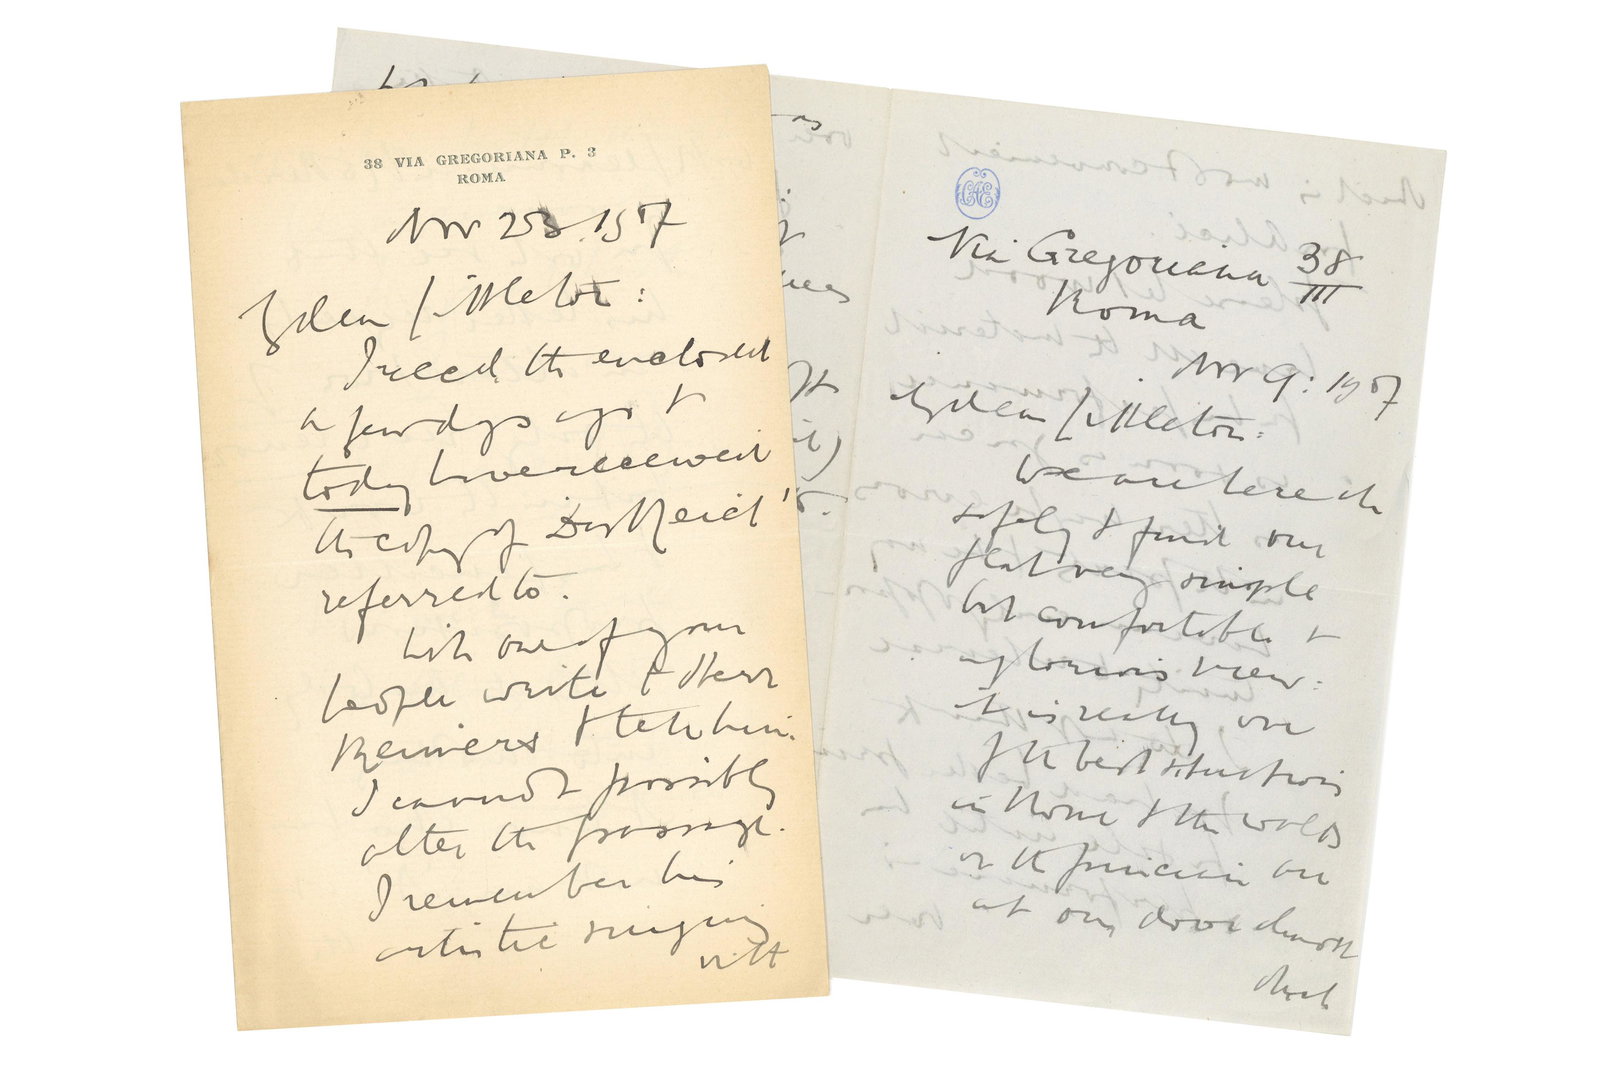 38 VIA GREGORIANA P. 3
ROMA
Nov 23. 1907
My dear Littleton:
I recd. the enclosed
a few days ago &
today have received
the copy of Das Reich
referred to.
Will one of your
people write to Herr
Reimers & tell him.
I cannot possibly
alter the passage.
I remember his
artistic singing
with
CAE
Via Gregoriana 38
III
Roma
Nov 9: 1907
My dear Littleton:
We are here
safely & find our
flat very simple
but comfortable &
a glorious view:
it is really one
of the best situations
in Rome & the world
on the Pincian
at our door almost